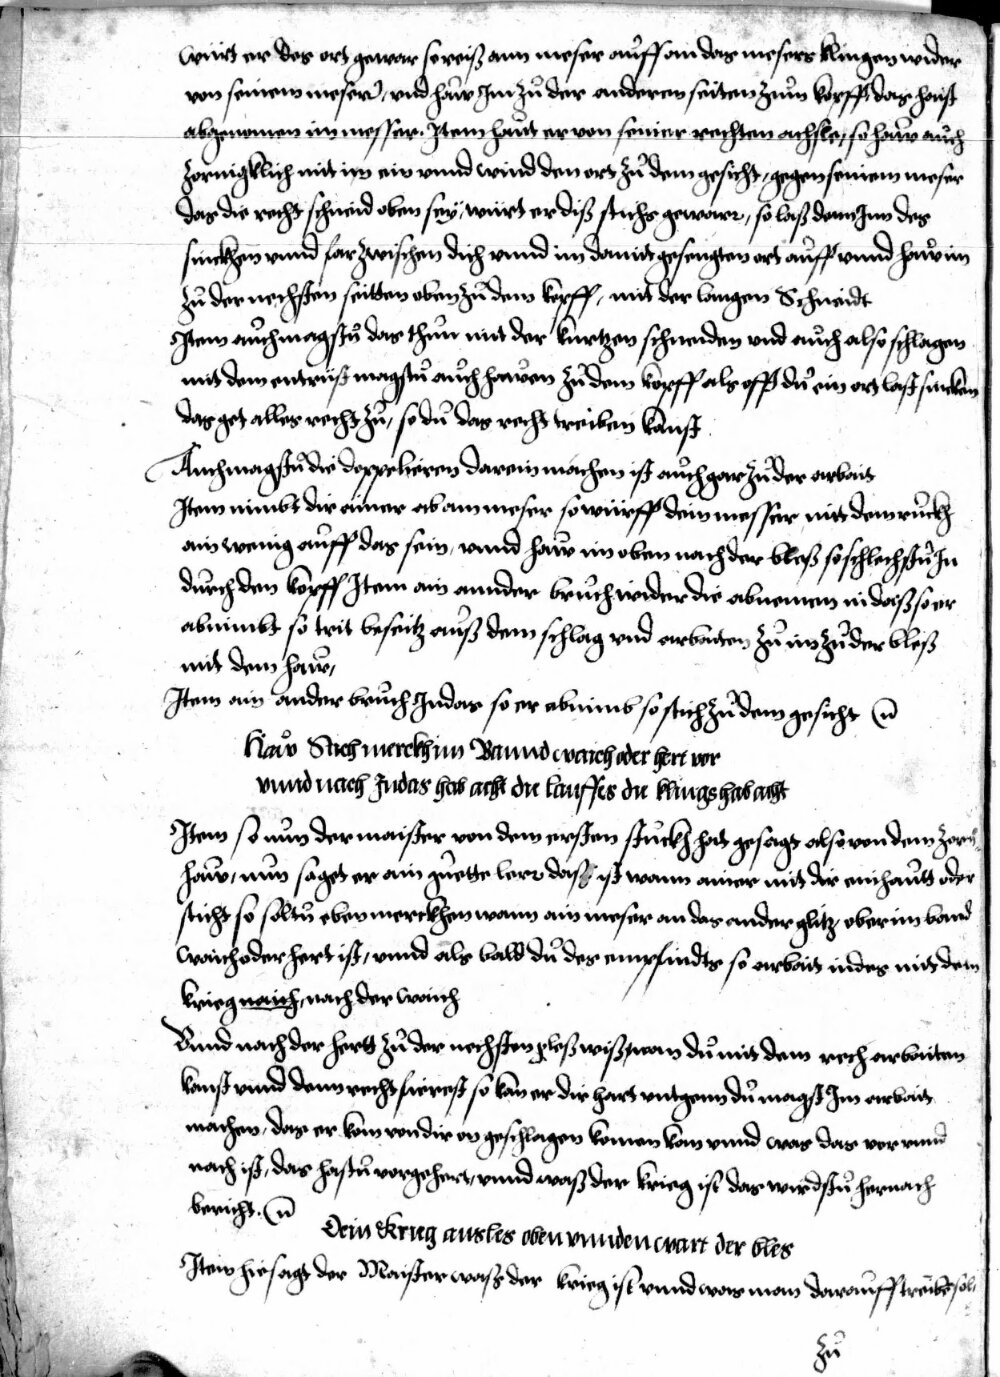 würt er des ort gewar so reiß ann meser auff an das mesers klingen wider
von seinem meser, vnd haw Im zu der anderen seiten zum kopff, das haist
abgenomen im messer. Item haut er von seiner rechten achsle, so haw auch
zornigklich mit im ein vnnd wind den ort zu dem gesicht, gegen seinem meser
das die recht schneid oben sey, würt er diß stichs gewarr, so laß denn Inn des
sinckhen vnnd far zwischen dich vnnd im damit gesengten ort auff vnnd haw im
zu der nechsten seitten oben zu dem kopff, mit der langen Schneidt
Item auch magstu das thun mit der kurtzen schneiden vnd auch also schlagen
mit dem entrüst magstu auch hawen zu dem kopff als offt du ein ort last sincken
das get alles recht zu, so du das recht treiben kanst
Auch magstu die doppelieren darein machen ist auch gar zu der arbait
Item nimbt dir ainer ab am meser so würff dein messer mit dem ruckh
ain wenig auff das sein, vnnd haw im oben nach der bleß so schlechstu In
durch den kopff Item ain annder bruch wider die abnemen in daiß so er
abnimbt so trit beseitz auß dem schlag vnd arbaiten zu im zu der bleß
mit dem haw,
Item ain ander bruch Indas so er abnimb so stich zu dem gesicht
Haw Stich merckh im Bannd waich oder hert vor
vnnd nach Indas hab acht die lauffes die klings hab acht
Item so nun der maister von dem ersten stuckh hat gesagt also von dem zorn
haw, nun saget er ain guette lerr daß ist wann ainer mit dir einhautt oder
sticht so soltu eben merckhen wann ain meser an das ander glitz, ober im band
waich oder hert ist, vnnd als bald du des empfindts so arbait indes mit dem
krieg naich, nach der waich
Vnnd nach der hertt zu der nechsten pleß wiß, wan du mit dem rech arbaiten
kanst vnnd denn recht fierest so kan er dir hart entgenn du magst Im arbait
machen, das er kom von dir on geschlagen komen kan vnnd was das vor vnnd
nach ist, das hastu vor gehert, vnnd waß der krieg ist das wirdstu hernach
bericht.
Dein Krieg ausles oben vnnden wart der bles
Item hie sagt der Maister waß der krieg ist vnnd was man darauff treibe sol,
zu